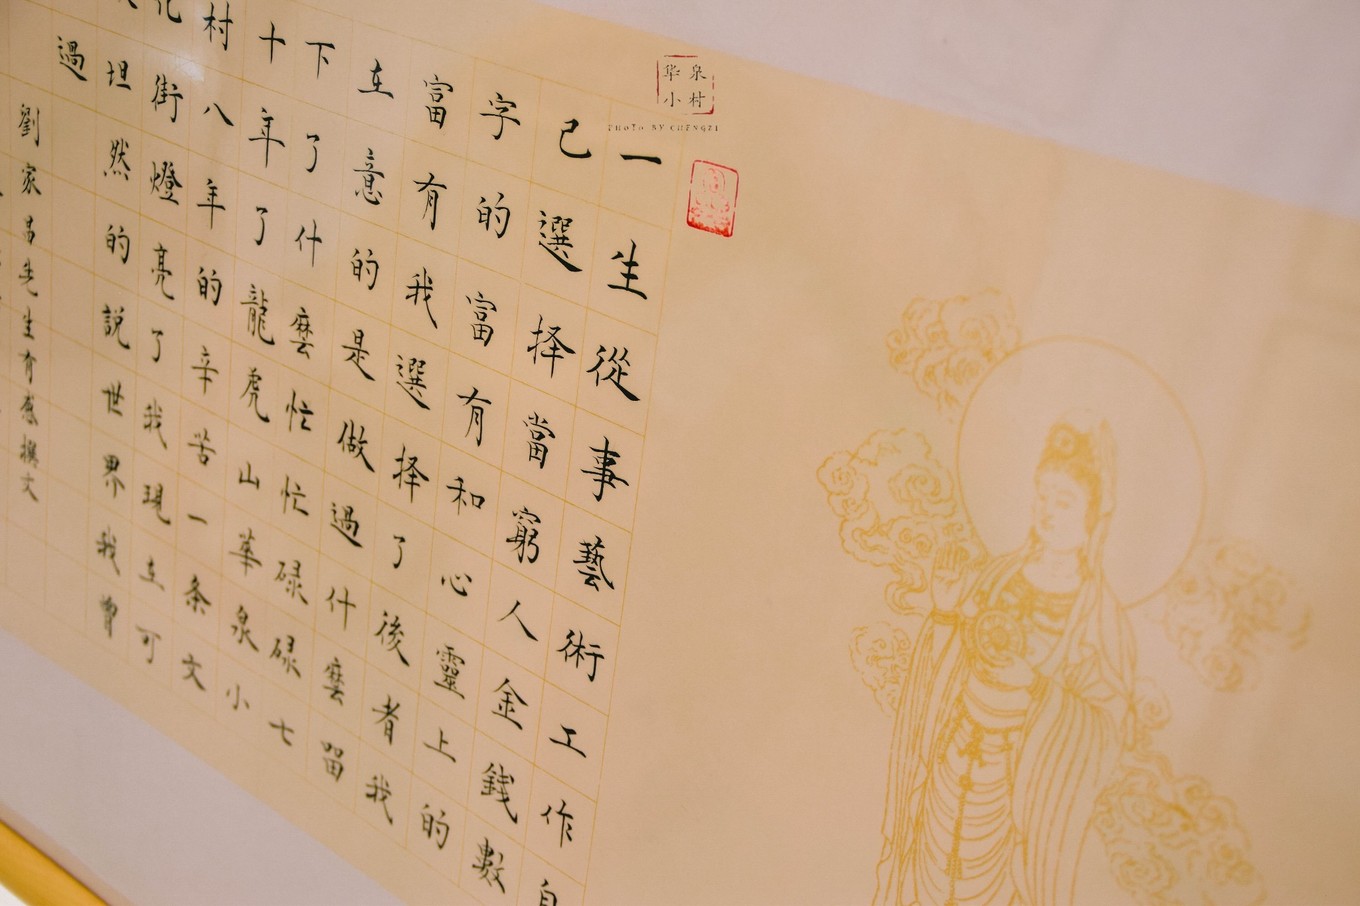 华泉
小村
PHOTO BY CHENGZI
一生從事藝術工作自
己選择當窮人金錢數
字的富有和心靈上的
富有我選择了後者我
在意的是做過什麼留
下了什麼忙忙碌碌七
十年了龍虎山華泉小
村八年的辛苦一条文
化街燈亮了我現在可
坦然的説世界我曾
過
劉家昌先生有感撰文